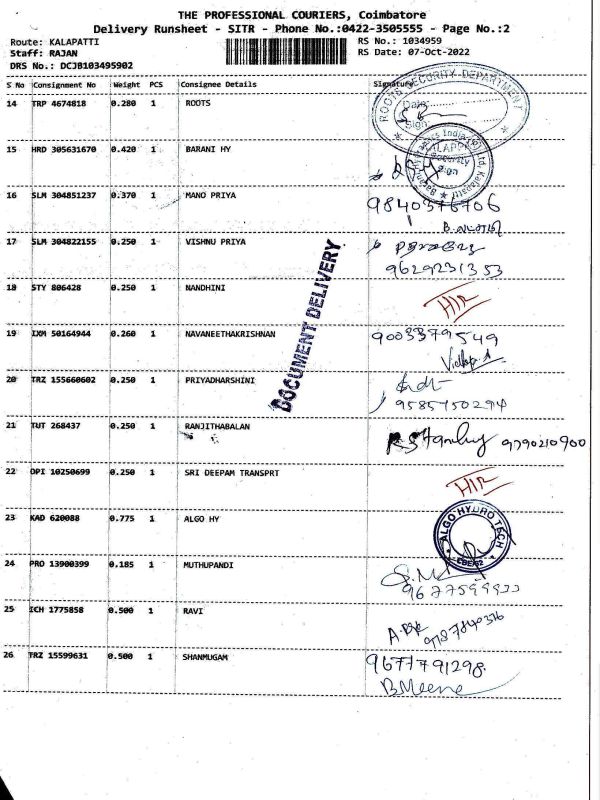 THE PROFESSIONAL COURIERS, Coimbatore
Delivery Runsheet - SITR - Phone No.:0422-3505555 - Page No.:2
Route: KALAPATTI RS No.: 1034959
Staff: RAJAN RS Date: 07-Oct-2022
DRS No.: DCJB103495902
S No Consignment No Weight PCS Consignee Details Signature
14 TRP 4674818 0.280 1 ROOTS
ROOTS SECURITY DEPARTMENT
Date:
Sign:
15 HRD 305631670 0.420 1 BARANI HY
Security
Sign
16 SLM 304851237 0.370 1 MANO PRIYA 9840376706
17 SLM 304822155 0.250 1 VISHNU PRIYA
9629231353
18 STY 806428 0.250 1 NANDHINI HIR
19 IXM 50164944 0.260 1 NAVANEETHAKRISHNAN 9003379549
20 TRZ 155660602 0.250 1 PRIYADHARSHINI
9585450294
21 TUT 268437 0.250 1 RANJITHABALAN 9790210900
22 OPI 10250699 0.250 1 SRI DEEPAM TRANSPRT HIR
23 KAD 620088 0.775 1 ALGO HY
ALGO HYDRO TECH
24 PRO 13900399 0.185 1 MUTHUPANDI
25 ICH 1775858 0.500 1 RAVI
26 TRZ 15599631 0.500 1 SHANMUGAM 9677791298
B Meena
DOCUMENT DELIVERY